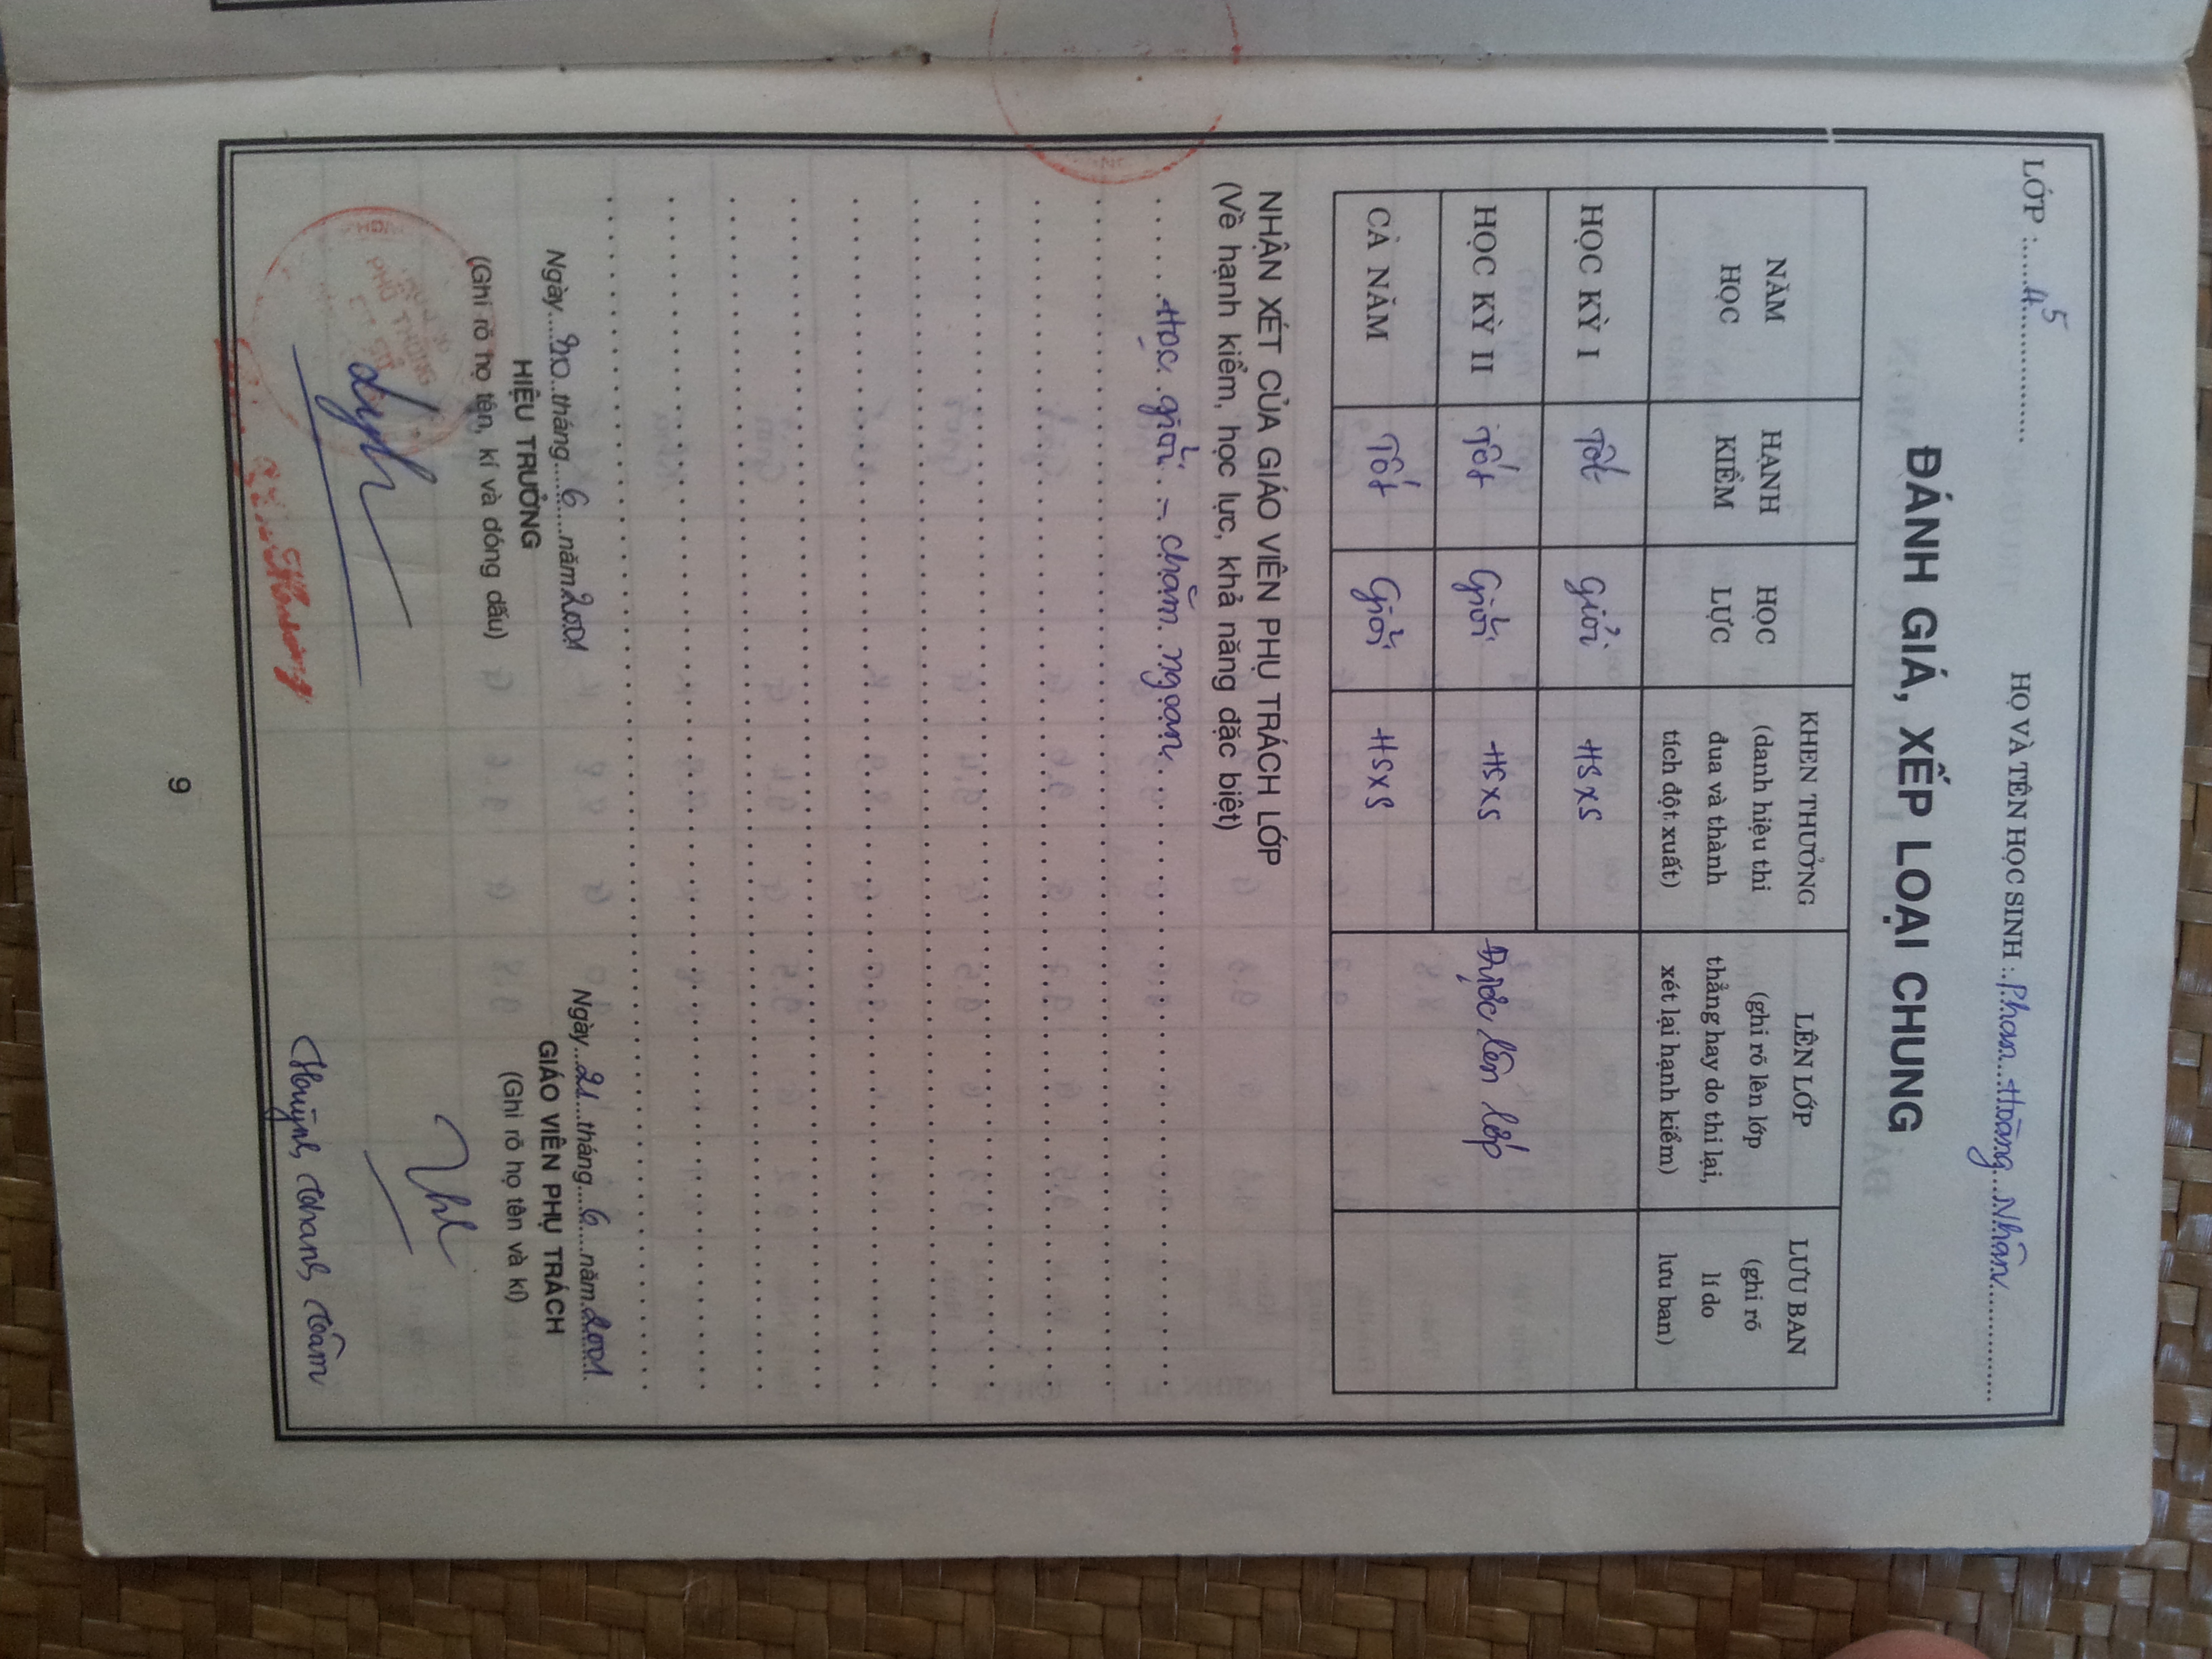 LỚP : 4⁵
HỌ VÀ TÊN HỌC SINH : Phan Hoàng Nhân
ĐÁNH GIÁ, XẾP LOẠI CHUNG
NĂM HỌC
HẠNH KIỂM
HỌC LỰC
KHEN THƯỞNG (danh hiệu thi đua và thành tích đột xuất)
LÊN LỚP (ghi rõ lên lớp thẳng hay do thi lại, xét lại hạnh kiểm)
LƯU BAN (ghi rõ lí do lưu ban)
HỌC KỲ I Tốt Giỏi HSXS
HỌC KỲ II Tốt Giỏi HSXS Được lên lớp
CẢ NĂM Tốt Giỏi HSXS
NHẬN XÉT CỦA GIÁO VIÊN PHỤ TRÁCH LỚP
(Về hạnh kiểm, học lực, khả năng đặc biệt)
Học giỏi - chăm ngoan
Ngày 20 tháng 6 năm 2001
HIỆU TRƯỞNG
(Ghi rõ họ tên, kí và đóng dấu)
PHỔ THÔNG
Ngày 21 tháng 6 năm 2001
GIÁO VIÊN PHỤ TRÁCH
(Ghi rõ họ tên và kí)
Huỳnh Thanh Tâm
9